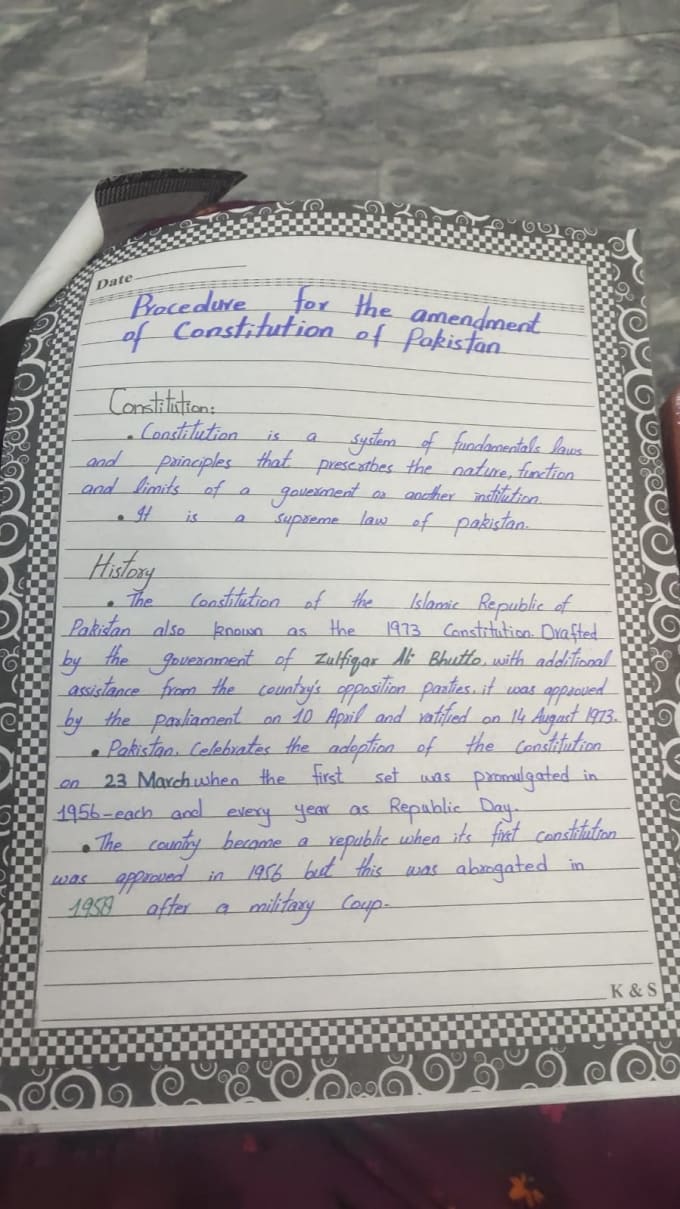 Date
Procedure for the amendment
of Constitution of Pakistan
Constitution:
• Constitution is a system of fundamentals laws
and principles that prescribes the nature, function
and limits of a goverment or another institution.
• It is a supreme law of pakistan.
History
• The Constitution of the Islamic Republic of
Pakistan also known as the 1973 Constitution. Drafted
by the government of Zulfiqar Ali Bhutto, with additional
assistance from the country's opposition parties, it was approved
by the parliament on 10 April and ratified on 14 August 1973.
• Pakistan. Celebrates the adoption of the Constitution
on 23 March when the first set was promulgated in
1956-each and every year as Republic Day.
• The country became a republic when its first constitution
was approved in 1956 but this was abrogated in
1958 after a military Coup.
K & S